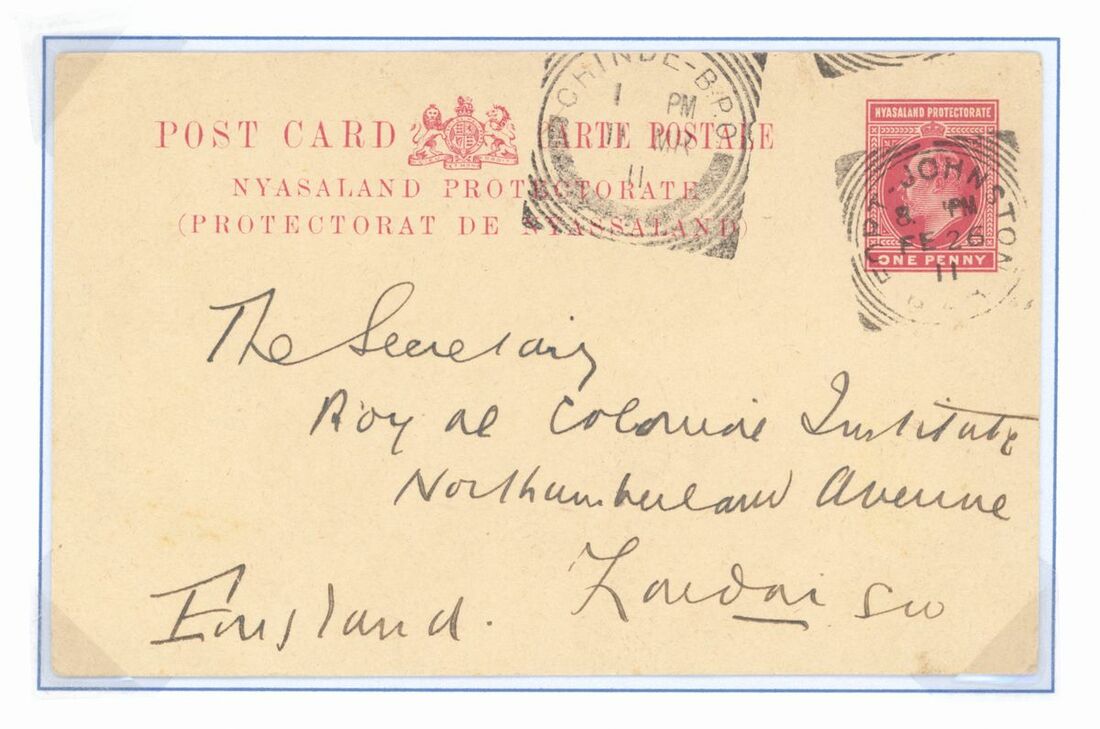 POST CARD CARTE POSTALE
NYASALAND PROTECTORATE
(PROTECTORAT DE NYASSALAND)
CHINDE-B.P.O
1 PM
11 MR
11
NYASALAND PROTECTORATE
ONE PENNY
FORT-JOHNSTON
8. PM
FE 26
11
The Secretary
Royal Colonial Institute
Northumberland Avenue
London SW
England.